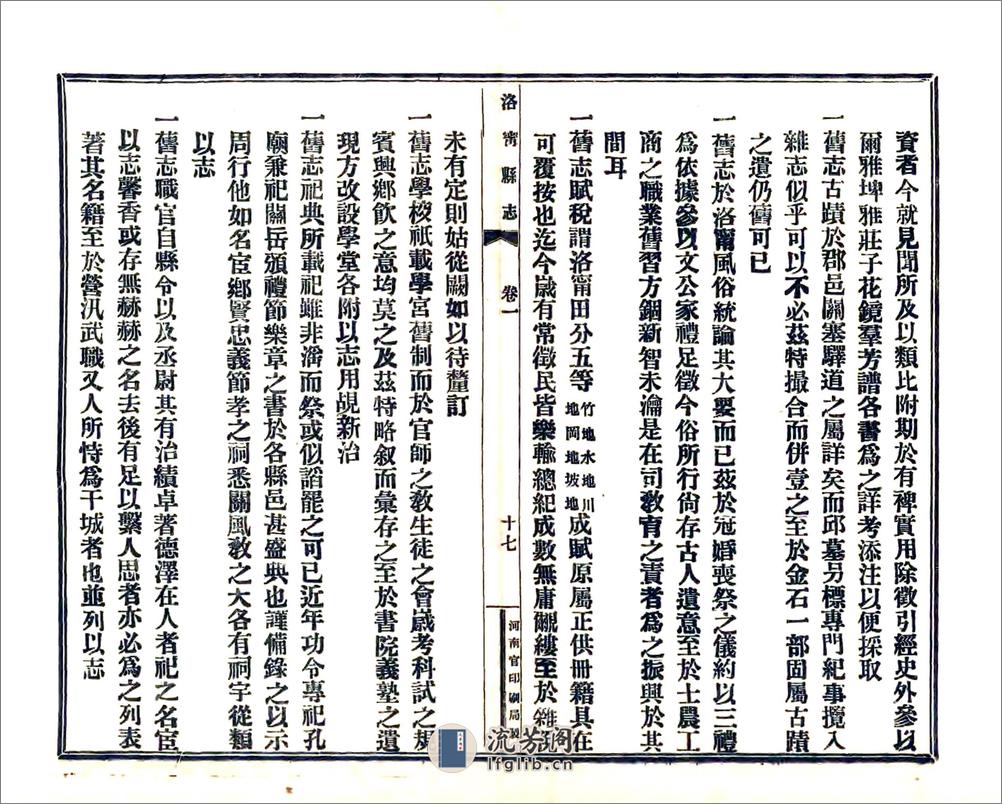 資者今就見聞所及以類比附期於有裨實用除徵引經史外參以
爾雅埤雅莊子花鏡羣芳譜各書爲之詳考添注以便採取
一舊志古蹟於郡邑關塞驛道之屬詳矣而邱墓另標專門紀事攬入
雜志似乎可以不必茲特撮合而併壹之至於金石一部固屬古蹟
之遺仍舊可已
一舊志於洛甯風俗統論其大要而已茲於冠婚喪祭之儀約以三禮
爲依據參以文公家禮足徵今俗所行尙存古人遺意至於士農工
商之職業舊習方錮新智未瀹是在司敎育之責者爲之振興於其
間耳
一舊志賦稅謂洛甯田分五等竹地水地川地岡地坡地成賦原屬正供冊籍具在
可覆按也迄今歲有常徵民皆樂輸總紀成數無庸覼縷至於雜
洛甯縣志
卷一
十七
河南官印刷局
未有定則姑從闕如以待釐訂
一舊志學校祇載學宮舊制而於官師之敎生徒之會歲考科試之規
賓興鄉飲之意均莫之及茲特略敘而彙存之至於書院義塾之遺
現方改設學堂各附以志用覘新治
一舊志祀典所載祀雖非瀆而祭或似謟罷之可已近年功令專祀孔
廟兼祀關岳頒禮節樂章之書於各縣邑甚盛典也謹備錄之以示
周行他如名宦鄉賢忠義節孝之祠悉關風敎之大各有祠宇從類
以志
一舊志職官自縣令以及丞尉其有治績卓著德澤在人者祀之名宦
以志馨香或存無赫赫之名去後有足以繫人思者亦必爲之列表
著其名籍至於營汛武職又人所恃爲干城者也並列以志
流芳阁
lfglib.cn